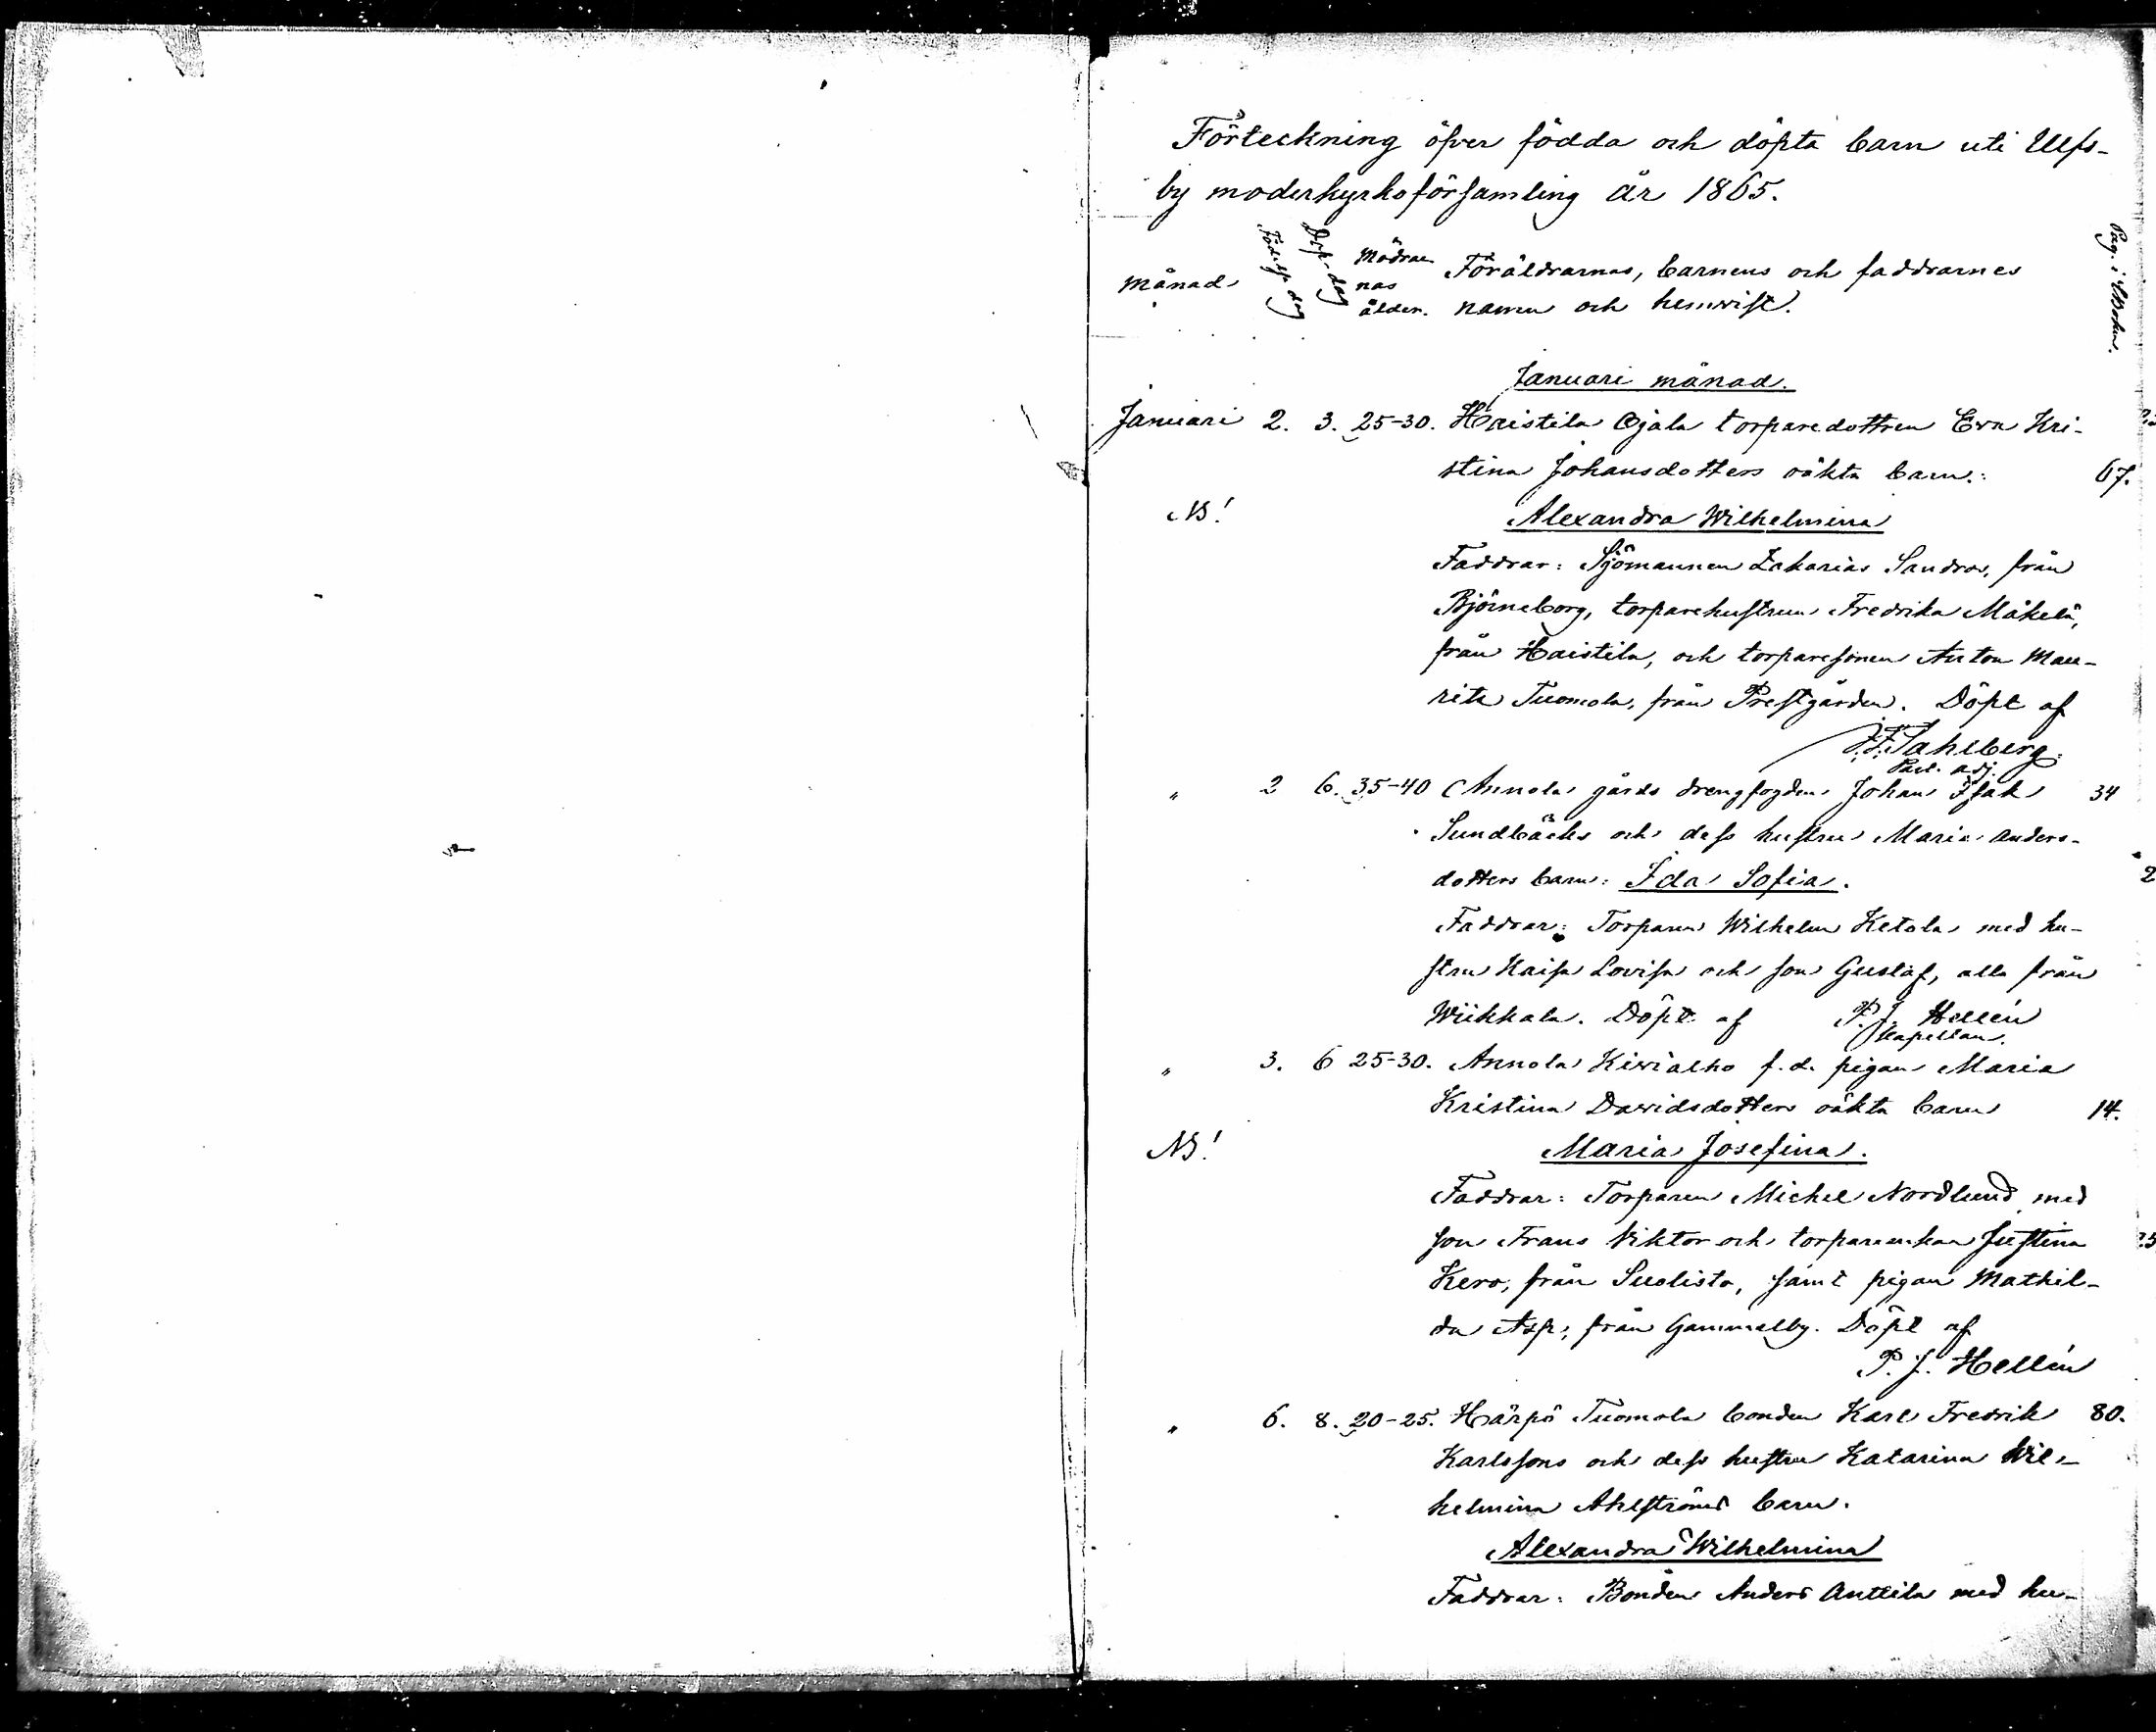 Förteckning öfver födda och döpta barn uti Ulfs-
by moderkyrkoförsamling år 1865.
Månad
Födelse dag
Dop-dag
Mödrar
nas
ålder.
Föräldrarnas, barnens och faddrarnes
namn och hemvist.
Pag. i
Januari månad.
Januari 2. 3. 25-30. Haistila Ojala torparedottren Eva Kri-
stina Johansdotters oäkta barn: 67.
NB! Alexandra Wilhelmina
Faddrar: Sjömannen Zakarias Sandros, från
Björneborg, torparehustrun Fredrika Mäkelä,
från Haistila, och torparesonen Anton Mau-
ritz Tuomola, från Prestgården. Döpt af
Sahlberg.
adj.
" 2 6. 35-40 Annola gårds drengfogden Johan Isak 34
Sundbäcks och dess hustru Maria Anders-
dotters barn: Ida Sofia.
Faddrar: Torparen Wilhelm Ketola med hu-
stru Kaisa Lovisa och son Gustaf, alla från
Wiikkala. Döpt af P. J. Hellén
Kapellan.
" 3. 6 25-30. Annola Kivialho f. d. pigan Maria
Kristina Davidsdotters oäkta barn 14.
NB! Maria Josefina.
Faddrar: Torparen Michel Nordlund med
son Frans Viktor och torpareenkan Justina
Kero, från Suolisto, samt pigan Mathil-
da Asp, från Gammelby. Döpt af
P. J. Hellén
" 6. 8. 20-25. Härpö Tuomola bonden Karl Fredrik 80.
Karlssons och dess hustru Katarina Wil-
helmina Ahlströms barn.
Alexandra Wilhelmina
Faddrar: Bonden Anders Anttila med hu-